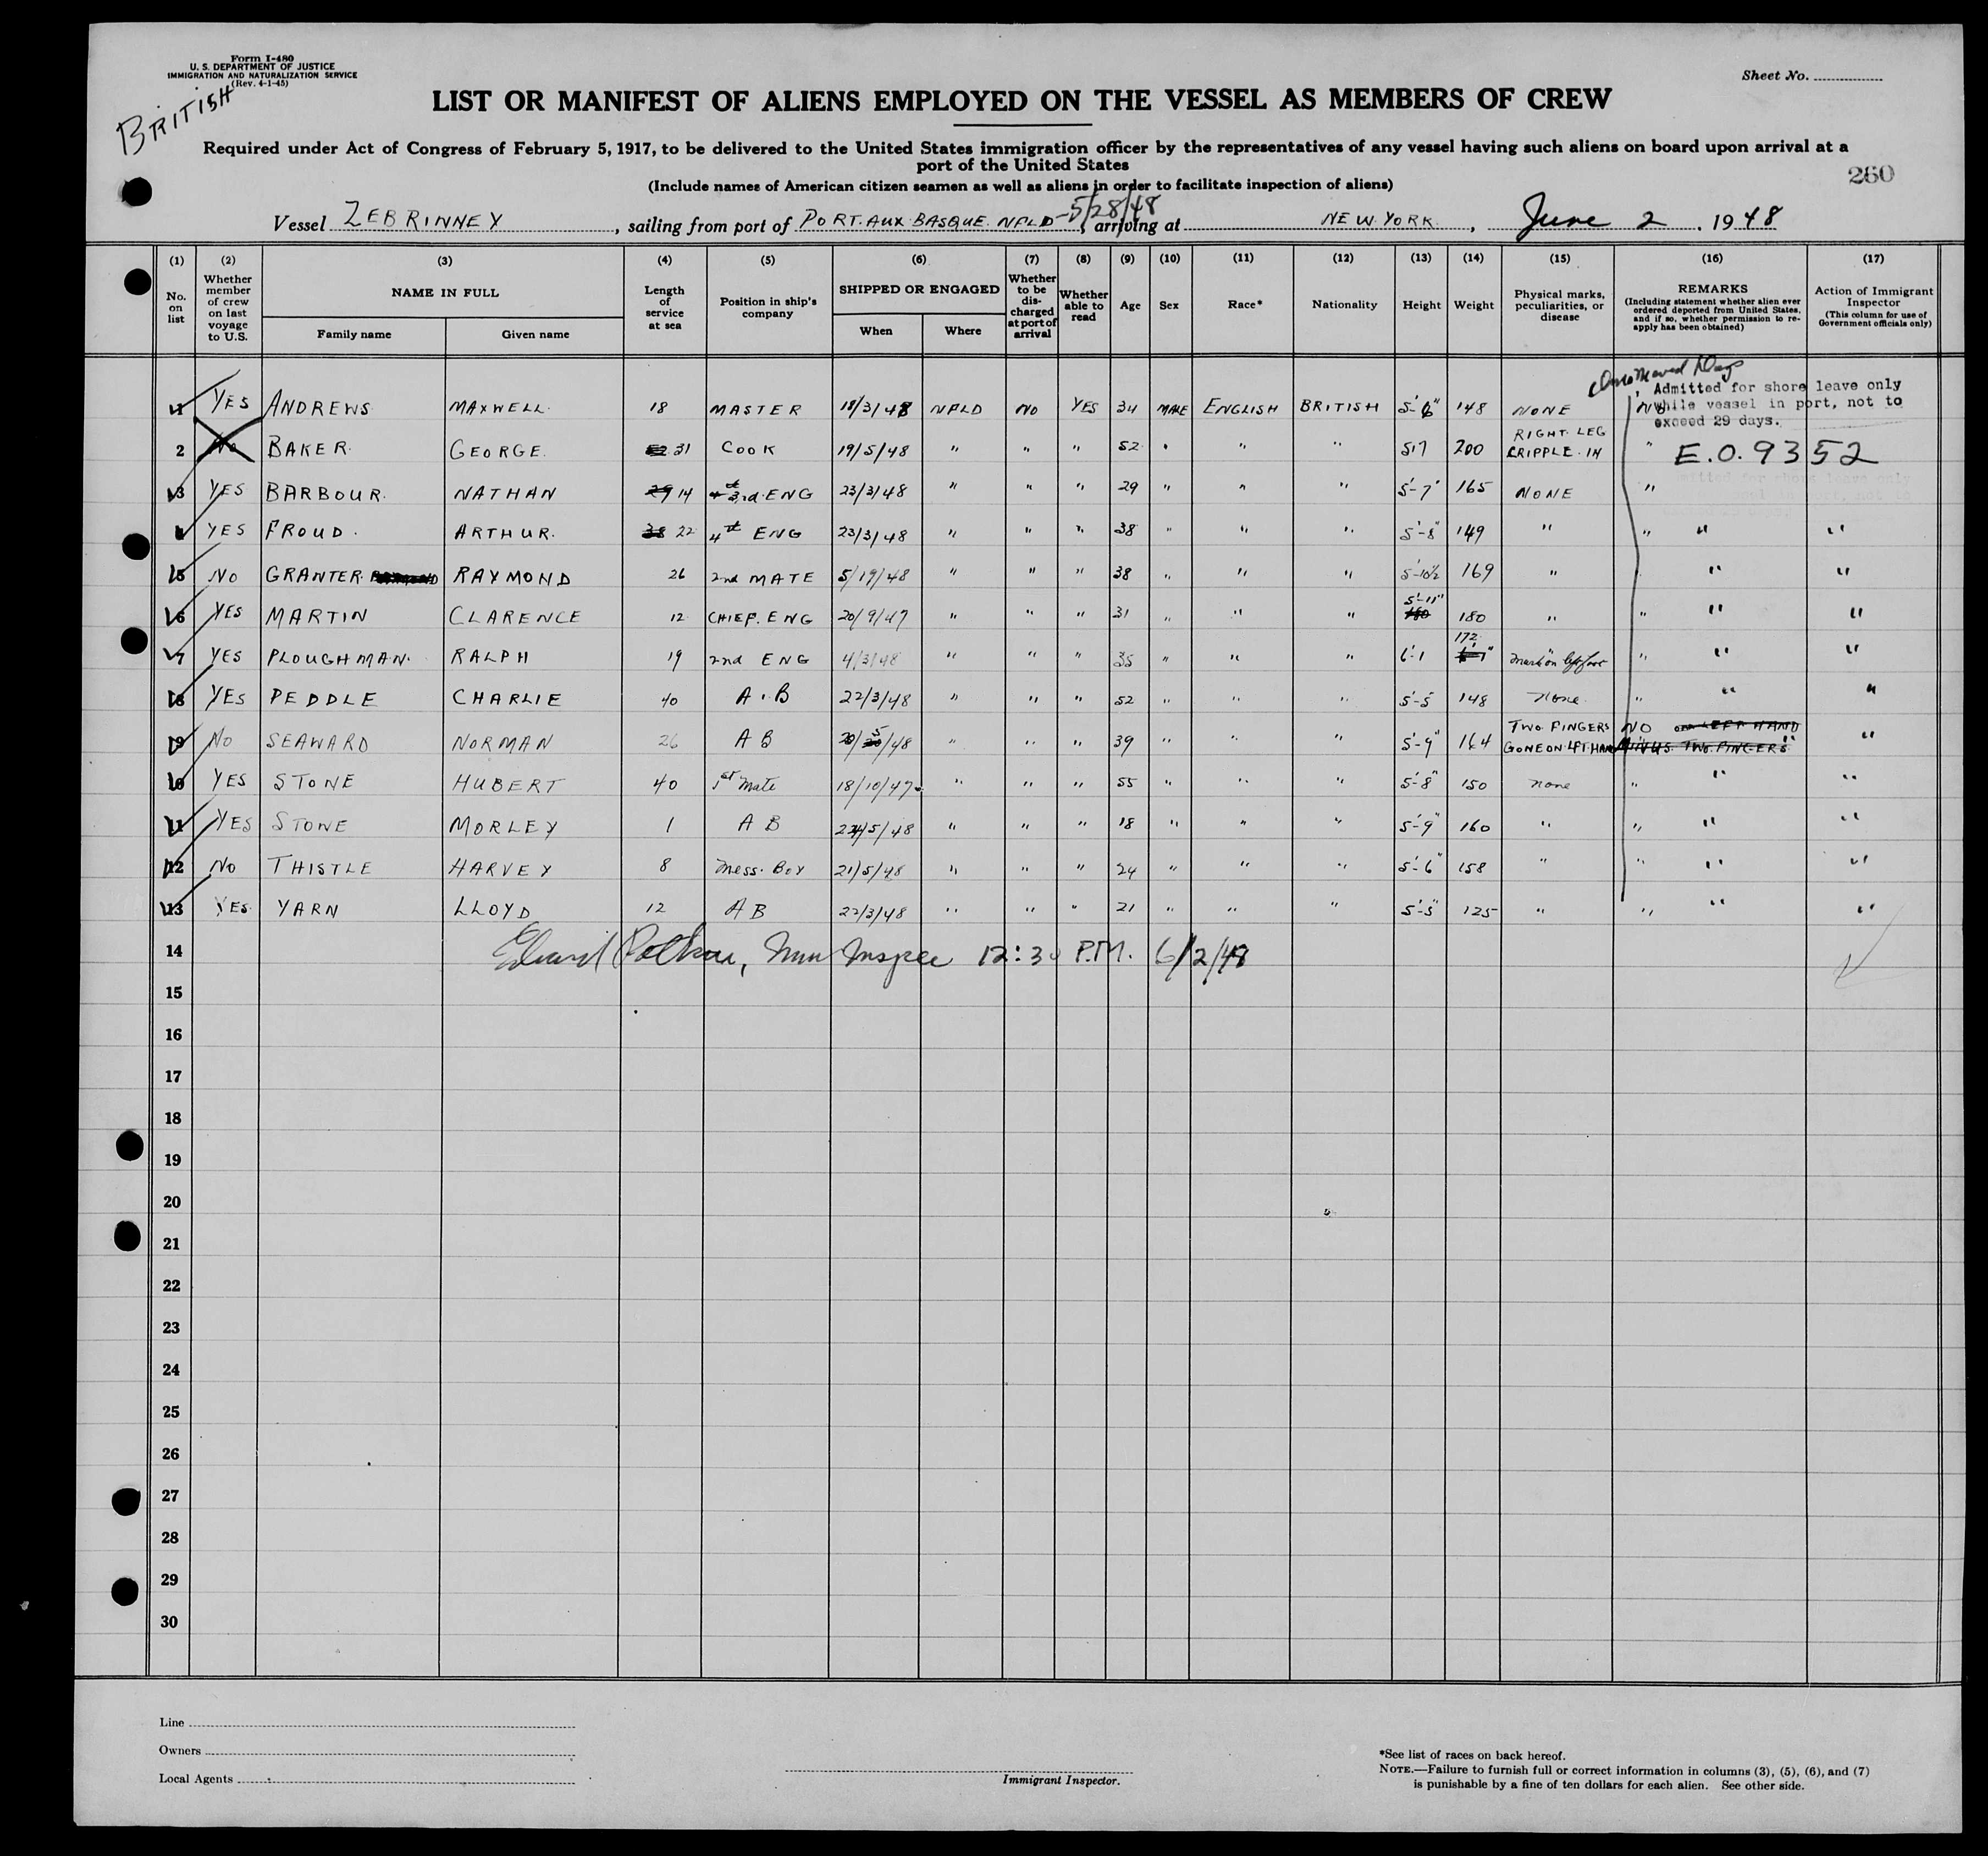 Form I-480
U. S. DEPARTMENT OF JUSTICE
IMMIGRATION AND NATURALIZATION SERVICE
(Rev. 4-1-45)
BRITISH
Sheet No.
LIST OR MANIFEST OF ALIENS EMPLOYED ON THE VESSEL AS MEMBERS OF CREW
Required under Act of Congress of February 5, 1917, to be delivered to the United States immigration officer by the representatives of any vessel having such aliens on board upon arrival at a
port of the United States
(Include names of American citizen seamen as well as aliens in order to facilitate inspection of aliens)
260
Vessel ZEBRINNEY, sailing from port of PORT. AUX. BASQUE. NFLD - 5/28/48, arriving at NEW YORK, June 2, 1948
(1) (2) (3) (4) (5) (6) (7) (8) (9) (10) (11) (12) (13) (14) (15) (16) (17)
No. on list
Whether member of crew on last voyage to U.S.
NAME IN FULL
Family name Given name
Length of service at sea
Position in ship's company
SHIPPED OR ENGAGED
When Where
Whether to be discharged at port of arrival
Whether able to read
Age
Sex
Race*
Nationality
Height
Weight
Physical marks, peculiarities, or disease
REMARKS
(Including statement whether alien ever ordered deported from United States, and if so, whether permission to reapply has been obtained)
Action of Immigrant Inspector
(This column for use of Government officials only)
Admitted for shore leave only
while vessel in port, not to
exceed 29 days.
1 YES ANDREWS MAXWELL 18 MASTER 18/3/48 NFLD NO YES 34 MALE ENGLISH BRITISH 5'-6" 148 NONE NO
2 No BAKER GEORGE 52 31 COOK 19/5/48 " " " 52 " " " 5'7 200 RIGHT LEG CRIPPLE. IN " E.O. 9352
3 YES BARBOUR NATHAN 29 14 3rd ENG 23/3/48 " " " 29 " " " 5'-7" 165 NONE "
4 YES FROUD ARTHUR 38 22 4th ENG 23/3/48 " " " 38 " " " 5'-8" 149 " " " "
5 NO GRANTER RAYMOND 26 2nd MATE 5/19/48 " " " 38 " " " 5'-10½ 169 " " " "
6 YES MARTIN CLARENCE 12 CHIEF. ENG 20/9/47 " " " 31 " " " 5'-11" 180 180 " " " "
7 YES PLOUGHMAN RALPH 19 2nd ENG 4/3/48 " " " 35 " " " 6'-1 172 " " "
8 YES PEDDLE CHARLIE 40 A.B 22/3/48 " " " 52 " " " 5'-5 148 none " " "
9 No SEAWARD NORMAN 26 AB 20/5/48 " " " 39 " " " 5'-9" 164 TWO FINGERS GONE ON LFT. HAND NO ON LEFT HAND MINUS TWO FINGERS "
10 YES STONE HUBERT 40 1st Mate 18/10/47 " " " 55 " " " 5'-8" 150 none " " "
11 YES STONE MORLEY 1 AB 24/5/48 " " " 18 " " " 5'-9" 160 " " " "
12 NO THISTLE HARVEY 8 Mess. Boy 21/5/48 " " " 24 " " " 5'-6" 158 " " " "
13 YES YARN LLOYD 12 AB 22/3/48 " " " 21 " " " 5'-5" 125 " " " "
14 12:30 P.M. 6/2/48
15
16
17
18
19
20
21
22
23
24
25
26
27
28
29
30
Line
Owners
Local Agents
Immigrant Inspector.
*See list of races on back hereof.
NOTE.—Failure to furnish full or correct information in columns (3), (5), (6), and (7)
is punishable by a fine of ten dollars for each alien. See other side.